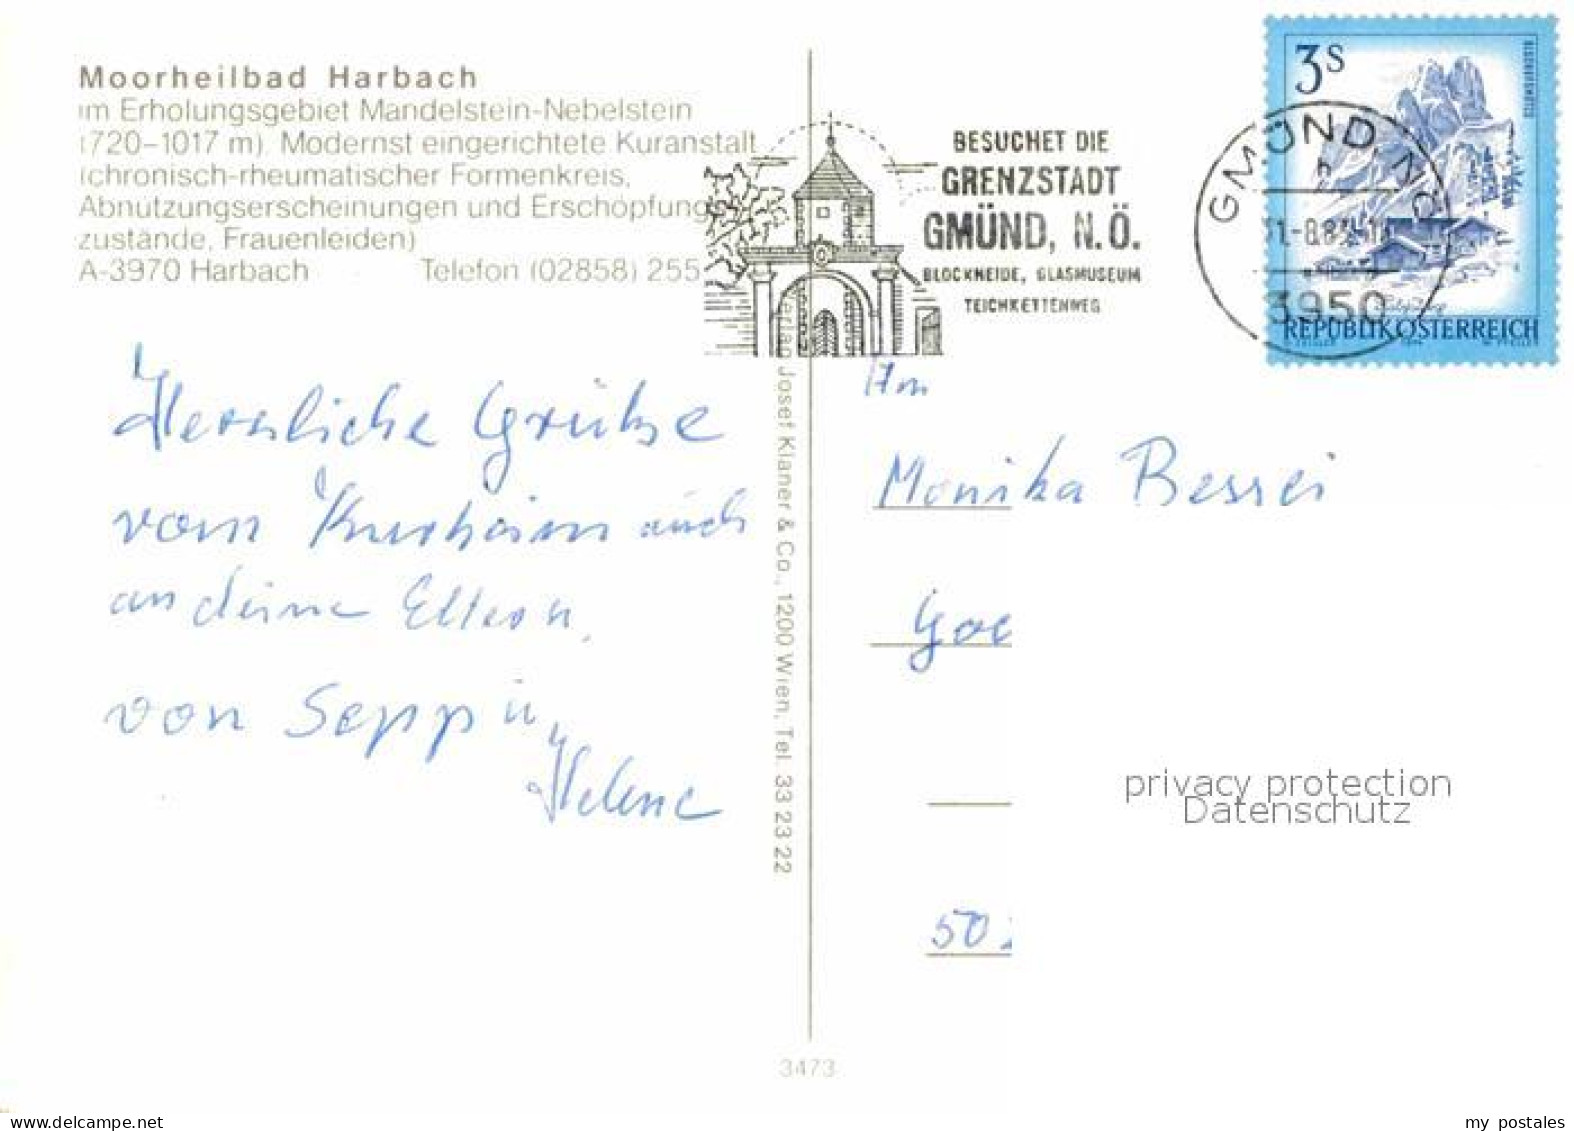 Moorheilbad Harbach
im Erholungsgebiet Mandelstein-Nebelstein
(720–1017 m). Modernst eingerichtete Kuranstalt
(chronisch-rheumatischer Formenkreis,
Abnutzungserscheinungen und Erschöpfungs
zustände, Frauenleiden)
A-3970 Harbach Telefon (02858) 255
Herzliche Grüße
vom Kurheim auch
an deine Eltern.
von Sepp u.
Helene
Verlag Josef Klaner & Co., 1200 Wien, Tel. 33 23 22
3473
BESUCHET DIE
GRENZSTADT
GMÜND, N.Ö.
BLOCKHEIDE, GLASMUSEUM
TEICHKETTENWEG
GMÜND, NÖ
3950
3S
BISCHOFSMÜTZE
REPUBLIK ÖSTERREICH
An
Monika Bessei
Goe
50
privacy protection
Datenschutz
delcampe.net
my_postales